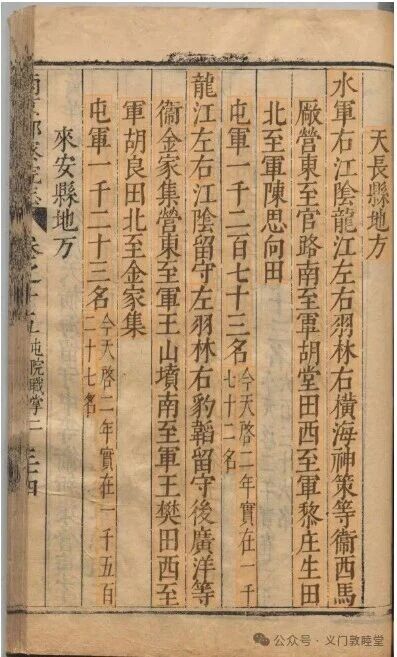 天長縣地方
水軍右江陰龍江左右羽林右橫海神策等衞西馬
厰營東至官路南至軍胡堂田西至軍黎庄生田
北至軍陳思向田
屯軍一千二百七十三名今天啓二年實在一千
七十二名
龍江左右江陰留守左羽林右豹韜留守後廣洋等
衞金家集營東至軍王山墳南至軍王樊田西至
軍胡良田北至金家集
屯軍一千二十三名今天啓二年實在一千五百
二十七名
來安縣地方
南京都察院志 卷之十五 屯院職掌二 三十四
公众号·义门敦睦堂